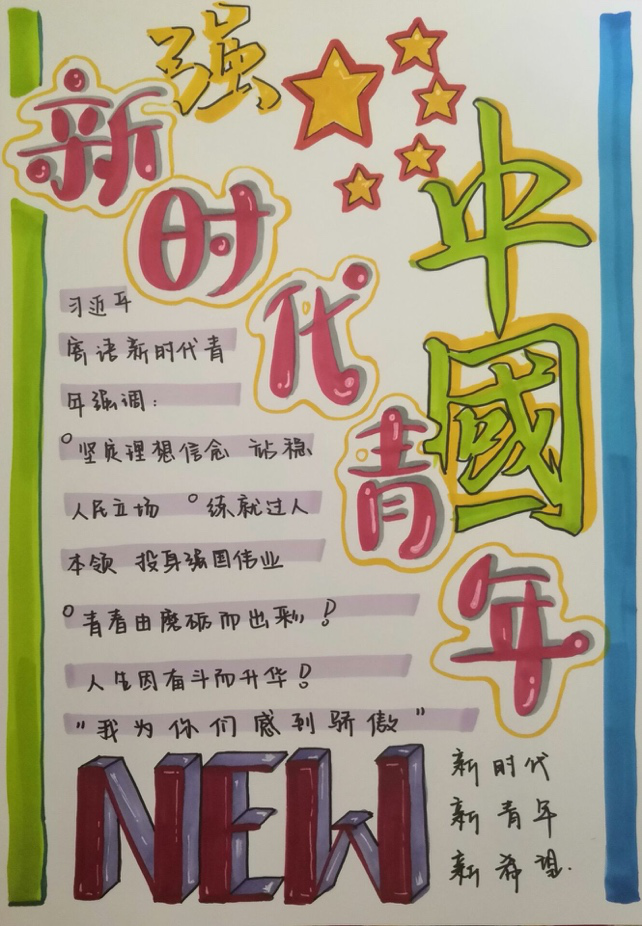 强
中國
新时代青年
习近平
寄语新时代青
年强调：
坚定理想信念 站稳
人民立场 练就过人
本领 投身强国伟业
青春由磨砺而出彩！
人生因奋斗而升华！
“我为你们感到骄傲”
NEW
新时代
新青年
新希望.